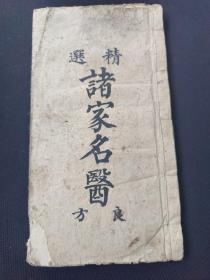 精選
諸家名醫
良方